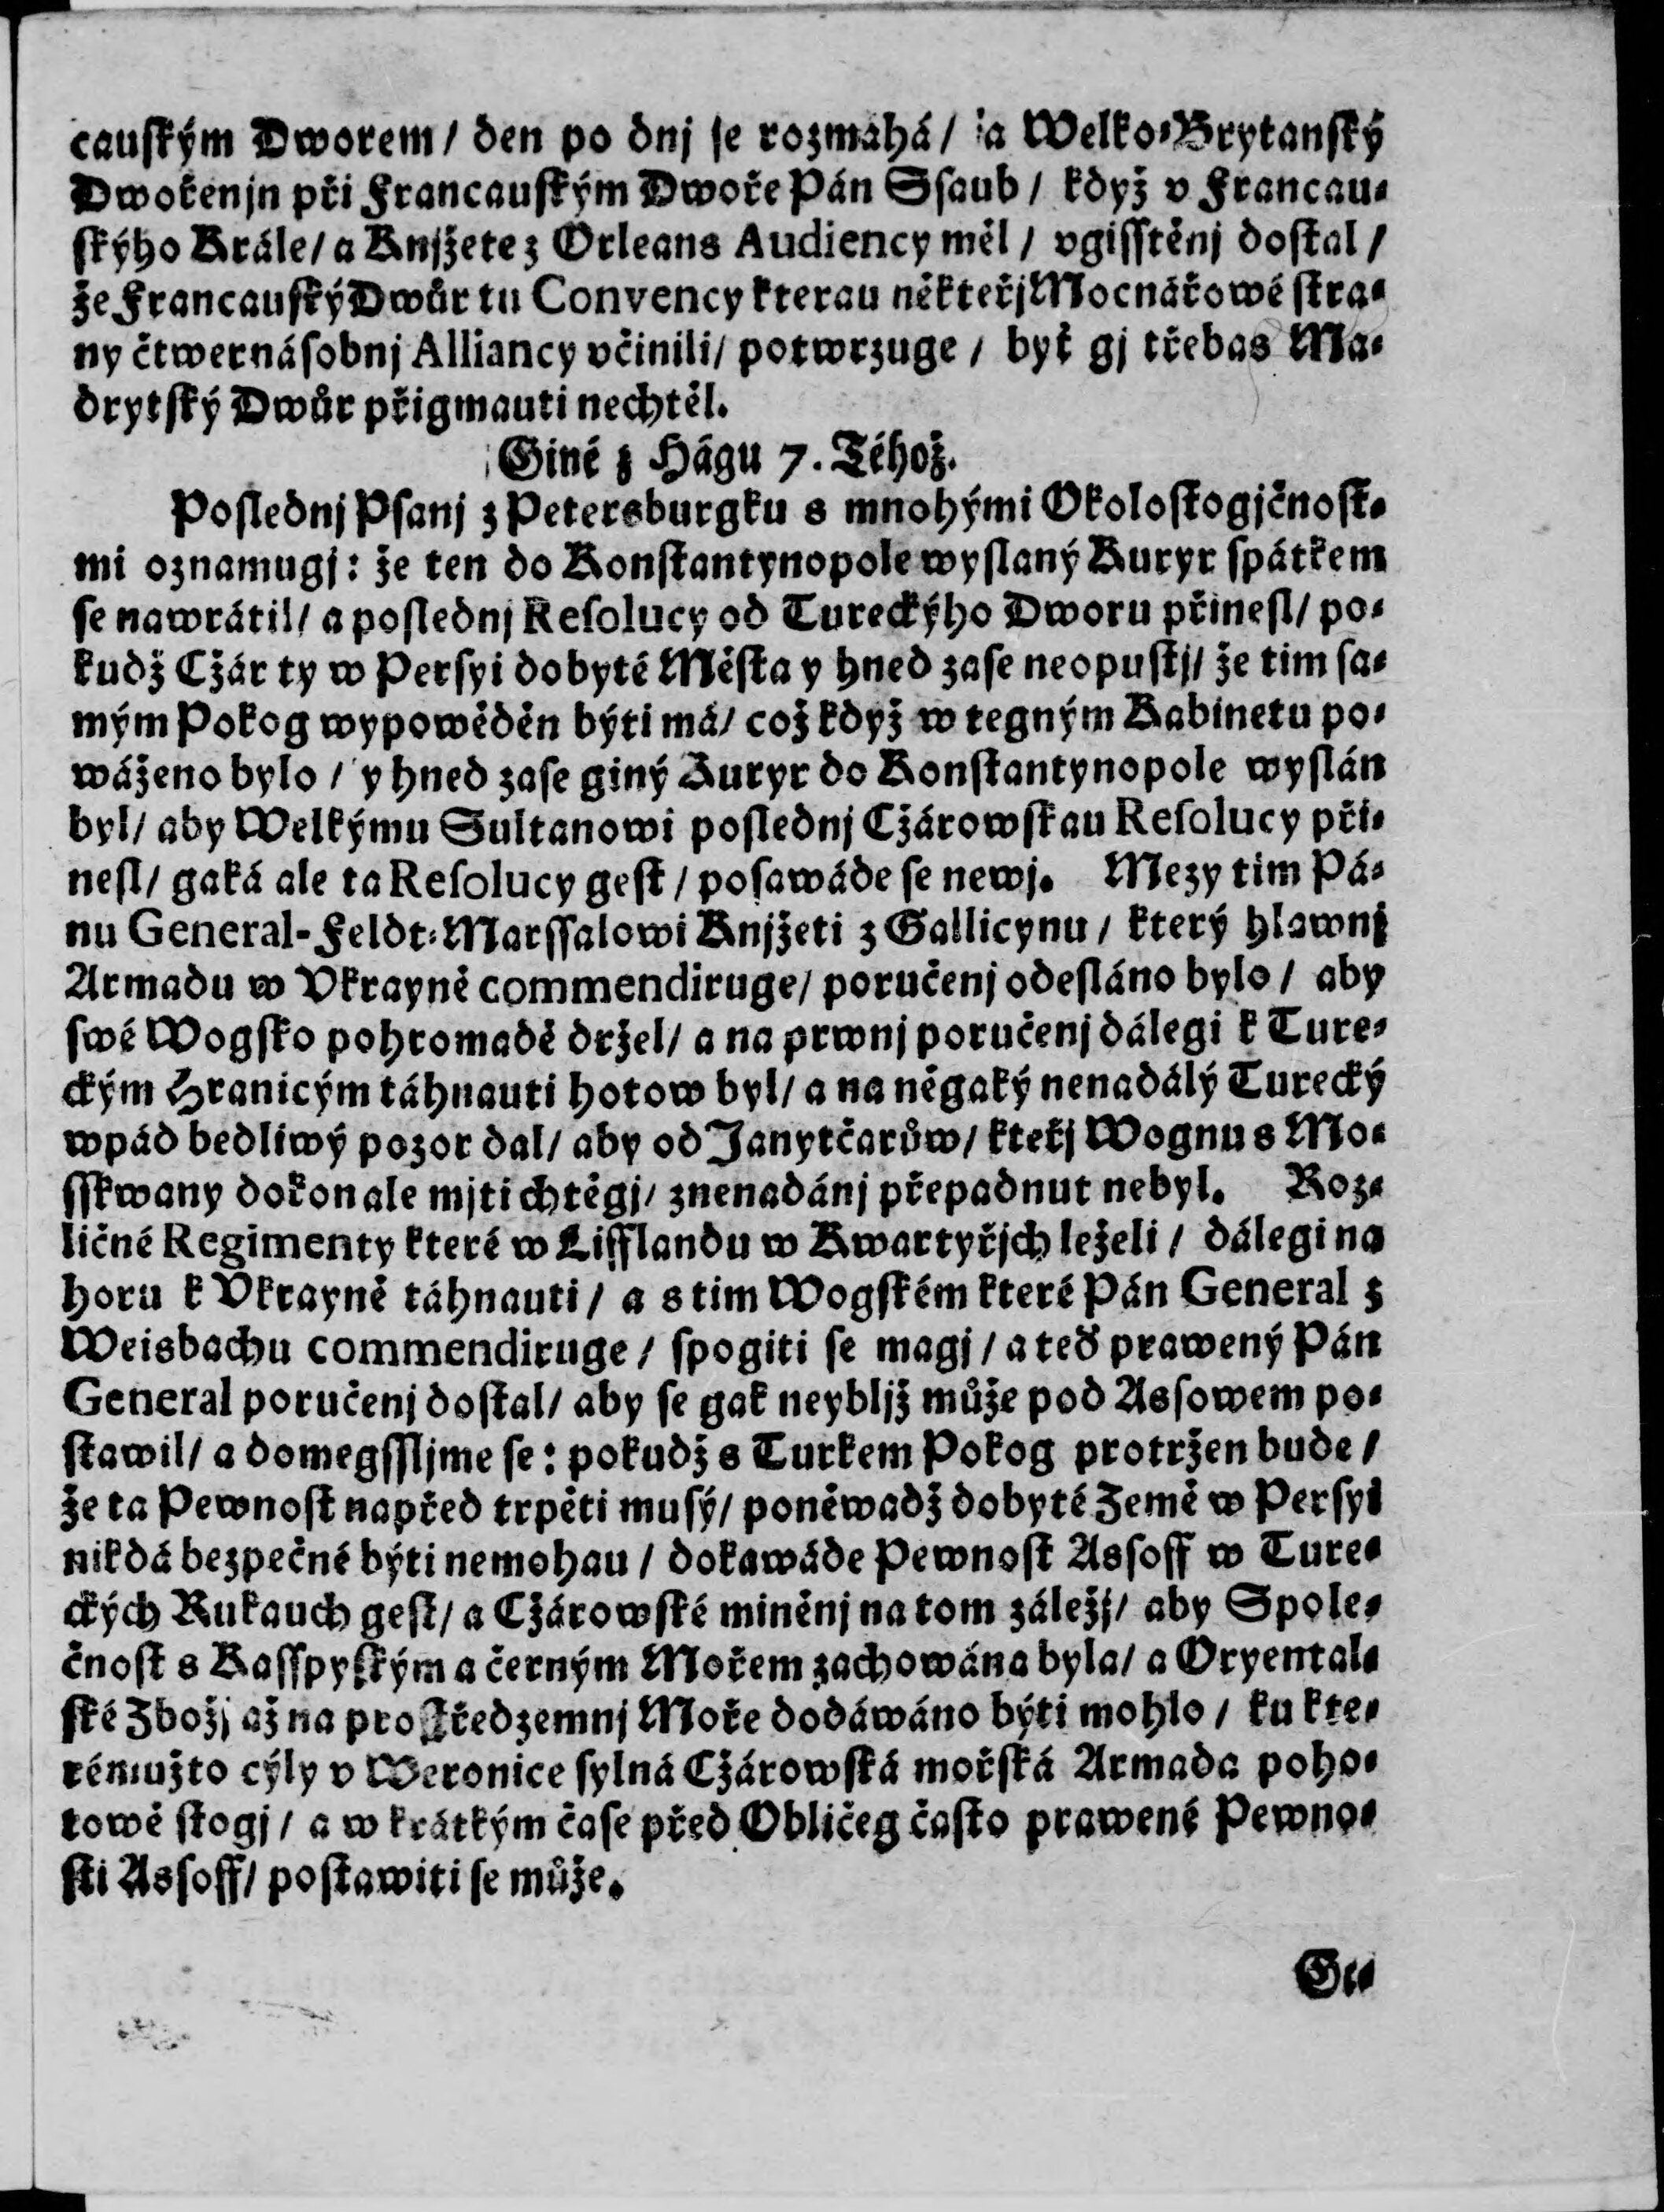 cauſkým Dworem / den po dnj ſe rozmáhá / a Welko-Brytanſký
Dwořenjn při Francauſkým Dwoře Pán Sſaub / když v Francau-
ſkýho Krále / a Knjžete z Orleans Audiency měl / vgiſſtěnj doſtal /
že Francauſký Dwůr tu Convency kterau někteřj Mocnářowé ſtra-
ny čtwernáſobnj Alliancy včinili / potwrzuge / byť gj třebas Ma-
drytſký Dwůr přigmauti nechtěl.
Giné z Hágu 7. Téhož.
Poſlednj Pſanj z Petersburgku s mnohými Okoloſtogjčnoſt-
mi oznamugj: že ten do Konſtantynopole wyſlaný Kuryr ſpátkem
ſe nawrátil / a poſlednj Reſolucy od Tureckýho Dworu přineſl / po-
kudž Cžár ty w Perſyi dobyté Měſta y hned zaſe neopuſtj / že tim ſa-
mým Pokog wypowěděn býti má / což když w tegným Kabinetu po-
wáženo bylo / y hned zaſe giný Kuryr do Konſtantynopole wyſlán
byl / aby Welkýmu Sultanowi poſlednj Cžárowſkau Reſolucy při-
neſl / gaká ale ta Reſolucy geſt / poſawáde ſe newj. Mezy tim Pá-
nu General-Feldt-Marſſalowi Knjžeti z Gallicynu / který hlawnj
Armadu w Vkrayně commendiruge / poručenj odeſláno bylo / aby
ſwé Wogſko pohromadě držel / a na prwnj poručenj dálegi k Ture-
ckým Hranicým táhnauti hotow byl / a na něgaký nenadálý Turecký
wpád bedliwý pozor dal / aby od Janytčarůw / kteřj Wognu s Mo-
ſſkwany dokonale mjti chtěgj / znenadánj přepadnut nebyl. Roz-
ličné Regimenty které w Lifflandu w Kwartyřjch leželi / dálegi na
horu k Vkrayně táhnauti / a s tim Wogſkém které Pán General z
Weisbachu commendiruge / ſpogiti ſe magj / a teď prawený Pán
General poručenj doſtal / aby ſe gak neybljž může pod Asſowem po-
ſtawil / a domegſſljme ſe: pokudž s Turkem Pokog protržen bude /
že ta Pewnoſt napřed trpěti muſý / poněwadž dobyté Země w Perſyi
nikdá bezpečné býti nemohau / dokawáde Pewnoſt Asſoff w Ture-
ckých Rukauch geſt / a Cžárowſké miněnj na tom záležj / aby Spole-
čnoſt s Kaſſpyſkým a černým Mořem zachowána byla / a Oryental-
ſké Zbožj až na proſtředzemnj Moře dodáwáno býti mohlo / ku kte-
rémužto cýly v Weronice ſylná Cžárowſká mořſká Armada poho-
towě ſtogj / a w krátkým čaſe před Obličeg čaſto prawené Pewno-
ſti Asſoff / poſtawiti ſe může.
Gi-